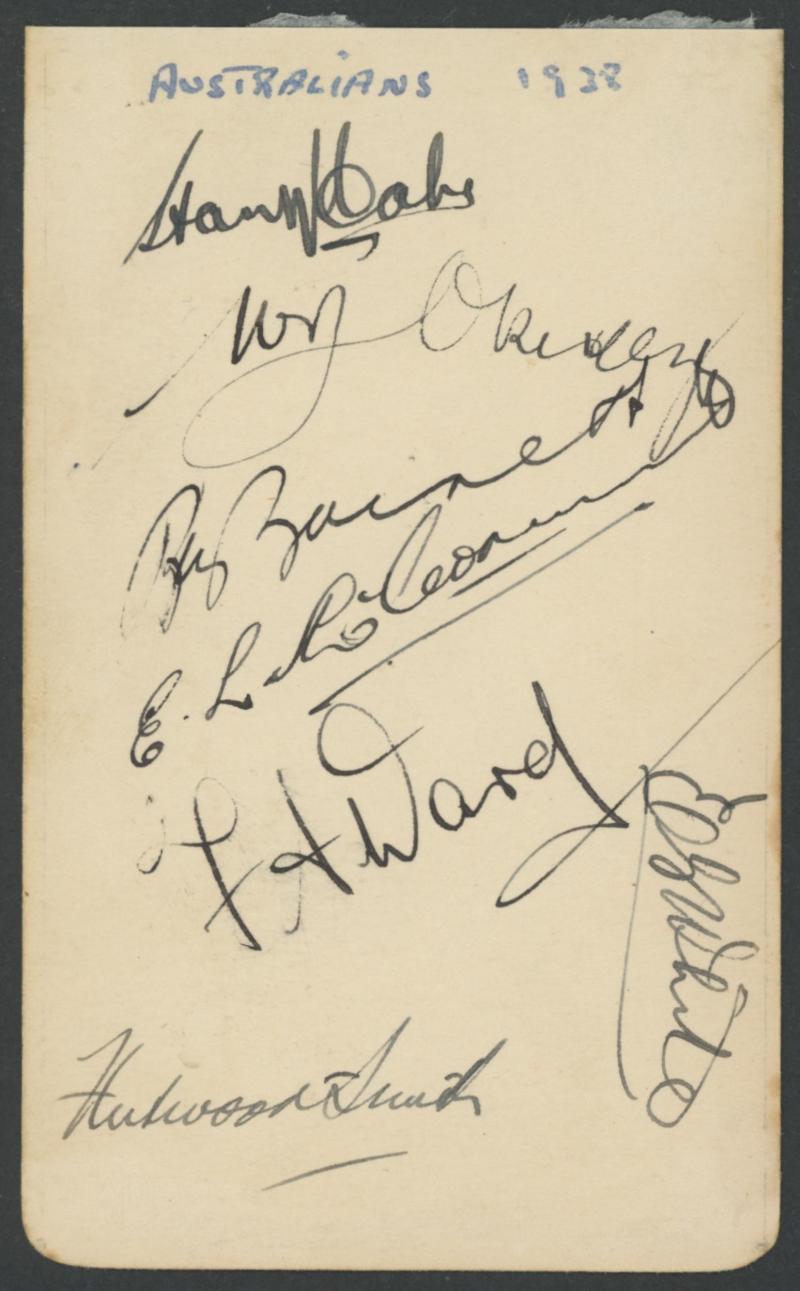 AUSTRALIANS 1938
Stan McCabe
W J O'Reilly
B A Barnett
E. L. McCormick
F A Ward
E S White
Fleetwood Smith